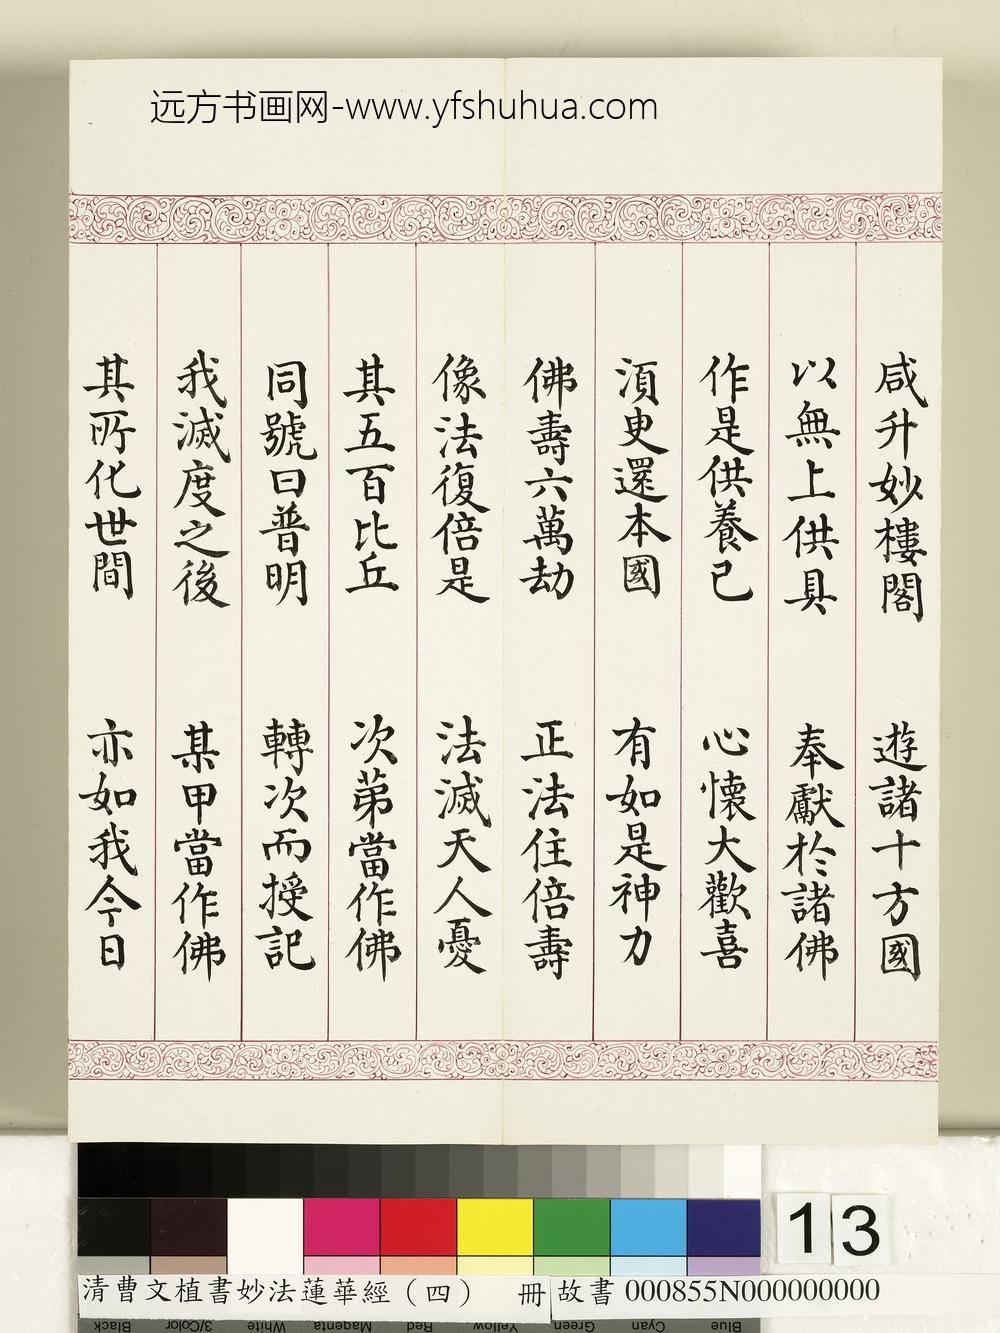 远方书画网-www.yfshuhua.com
咸升妙樓閣 遊諸十方國
以無上供具 奉獻於諸佛
作是供養已 心懷大歡喜
湏臾還本國 有如是神力
佛壽六萬劫 正法住倍壽
像法復倍是 法滅天人憂
其五百比丘 次第當作佛
同號曰普明 轉次而授記
我滅度之後 某甲當作佛
其所化世間 亦如我今日
13
清曹文植書妙法蓮華經(四) 冊 故書 000855N000000000
Black 3/Color White Magenta Red Yellow Green Cyan Blue